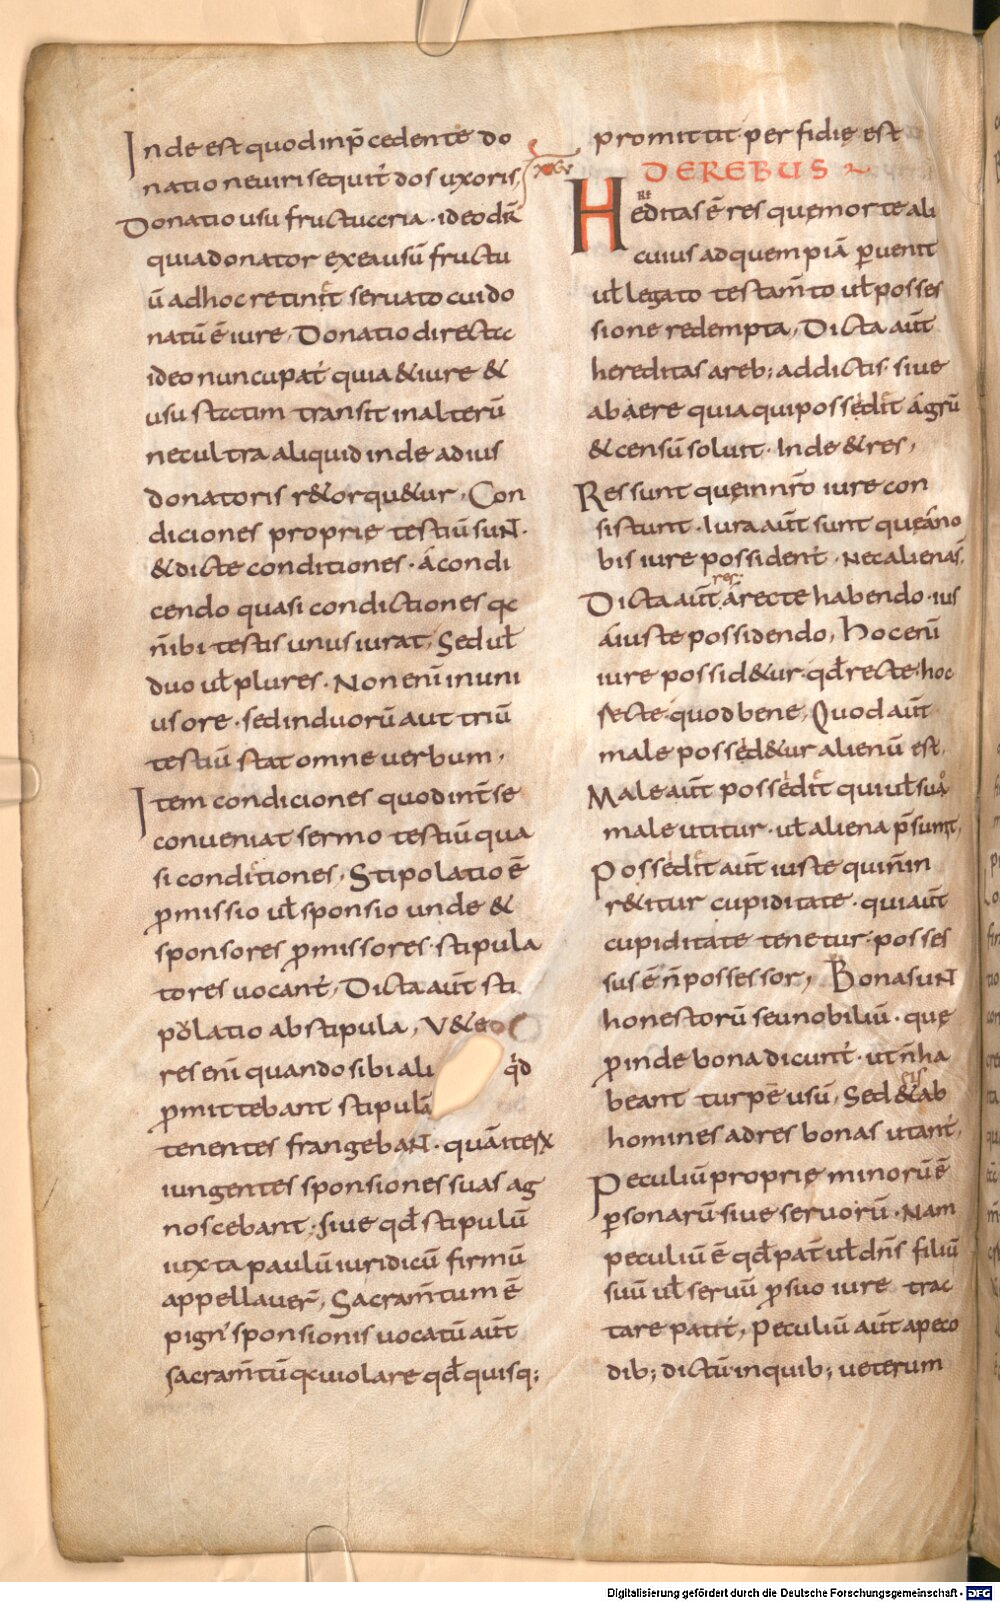 Inde est quod inp̄cedente do
natio ne uiri sequit̄ dos uxoris,
Donatio usu fructuaria · ideo dr̄
quia donator ex ea usū fructu
ū ad hoc retinet seruato cui do
natū ē iure, Donatio directa
ideo nuncupat̄ quia & iure &
usu statim transit in alterū
nec ultra aliquid inde ad ius
donatoris r&orqu&ur, Con
diciones proprię testiū sunt·
& dicte conditiones · a condi
cendo quasi condictiones qa
n̄ ibi testis unus iurat, Sed ul̄
duo ul̄ plures · Non eni in uni
us ore · sed in duorū aut triū
testiū stat omne uerbum,
Item condiciones quod int̄ se
conueniat sermo testiū qua
si conditiones, Stipolatio ē
p̄missio ul̄ sponsio unde &
sponsores p̄missores · stipula
tores uocant̄, Dicta aut̄ sti
polatio ab stipula, V&e
res eni quando sibi ali qd̄
p̄mittebant stipulā
tenentes frangebant · quā itex
iungentes sponsiones suas ag
noscebant · siue qd̄ stipulū
iuxta paulū iuridicū firmū
appellauer̄, Sacram̄tum ē
pign' sponsionis uocatū aut̄
sacram̄tū qa uiolare qd̄ quisq;
promittit perfidię est
XXV
DE REBUS
Hereditas ē res quę morte ali
cuius ad quempiā p̄uenit
ul̄ legato testam̄to ul̄ posses
sione redempta, Dicta aut̄
hereditas a reb; addictis · siue
ab aere quia qui possedit agrū
& censū soluit · Inde & res,
Res sunt quę in nr̄o iure con
sistunt · Iura aut̄ sunt que a no
bis iure possident̄ · Nec alienas,
Dicta aut̄ res a recte habendo · ius
a iuste possidendo, Hoc eni
iure possid&ur · qd̄ recte · hoc
recte · quod bene, Quod aut̄
male possed&ur alienū est,
Male aut̄ possedet qui ul̄ sua
male utitur · ul̄ aliena p̄sumit,
Possedet aut̄ iuste qui n̄ in
r&itur cupiditate · qui aut̄
cupiditate tenetur · posses
sus ē n̄ possessor, Bona sunt
honestorū seu nobiliū · quę
p̄inde bona dicunt̄ · ut n̄ ha
beant turpē usū, Sed eis & ab
homines ad res bonas utant̄,
Peculiū proprię minorū ē
p̄sonarū siue seruorū · Nam
peculiū ē qd̄ pat̄ ul̄ dn̄s filiū
suū ul̄ seruū p̄ suo iure trac
tare patit̄, Peculiū aut̄ a peco
dib; dictū in quib; ueterum
Digitalisierung gefördert durch die Deutsche Forschungsgemeinschaft - DFG